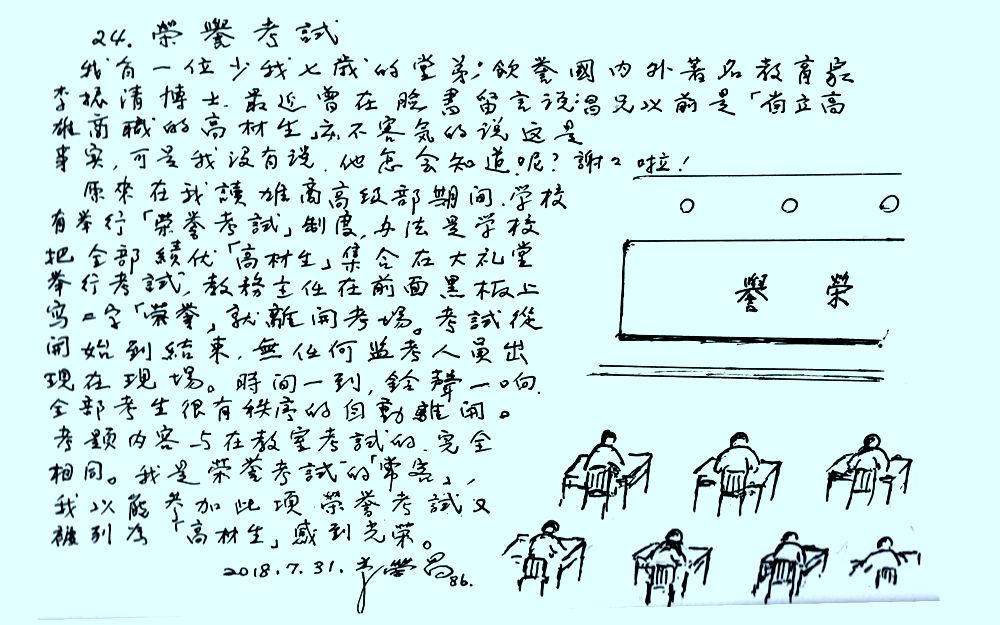 24. 榮譽考試
我有一位少我七歲的堂弟;飲譽國內外著名教育家
李振清博士.最近曾在臉書留言说:昌兄以前是「省立高
雄商職的高材生」亦不客気的说这是
事实,可是我没有说.他怎会知道呢?謝々啦!
原來在我讀雄商高级部期间.学校
有举行「榮誉考試」制度,办法是学校
把全部績优「高材生」集合在大礼堂
举行考試,教務主任在前面黑板上
寫二字「荣誉」就離開考場。考試從
開始到結束,無任何监考人員出
現在現場。時间一到,鈴聲一响.
全部考生很有秩序的自動離開。
考題内容与在教室考試的.完全
相同。我是荣誉考試的「常客」,
我以能参加此項榮誉考試又
被列为「高材生」感到光荣。
2018.7.31. 李榮昌86.
譽 榮